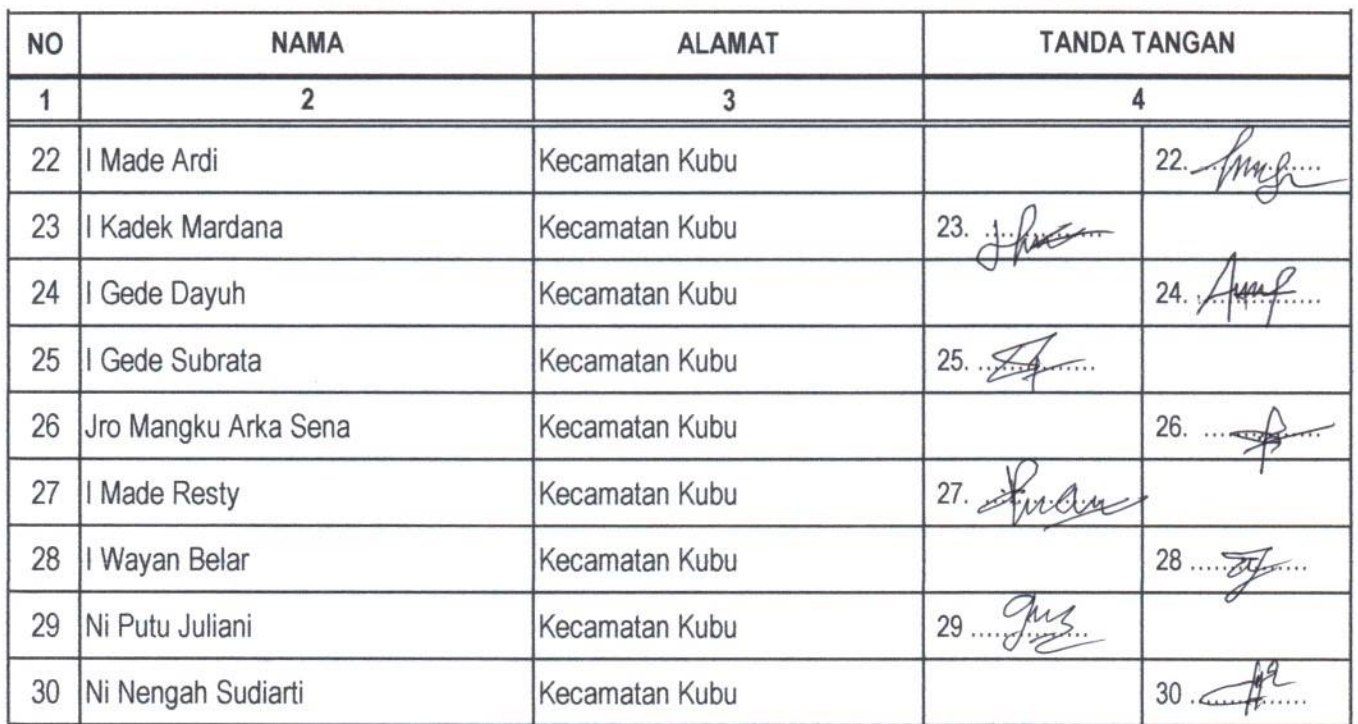 NO NAMA ALAMAT TANDA TANGAN
1 2 3 4
22 I Made Ardi Kecamatan Kubu 22. ..................
23 I Kadek Mardana Kecamatan Kubu 23. ..................
24 I Gede Dayuh Kecamatan Kubu 24. ..................
25 I Gede Subrata Kecamatan Kubu 25. ..................
26 Jro Mangku Arka Sena Kecamatan Kubu 26. ..................
27 I Made Resty Kecamatan Kubu 27. ..................
28 I Wayan Belar Kecamatan Kubu 28 ..................
29 Ni Putu Juliani Kecamatan Kubu 29 ..................
30 Ni Nengah Sudiarti Kecamatan Kubu 30 ..................